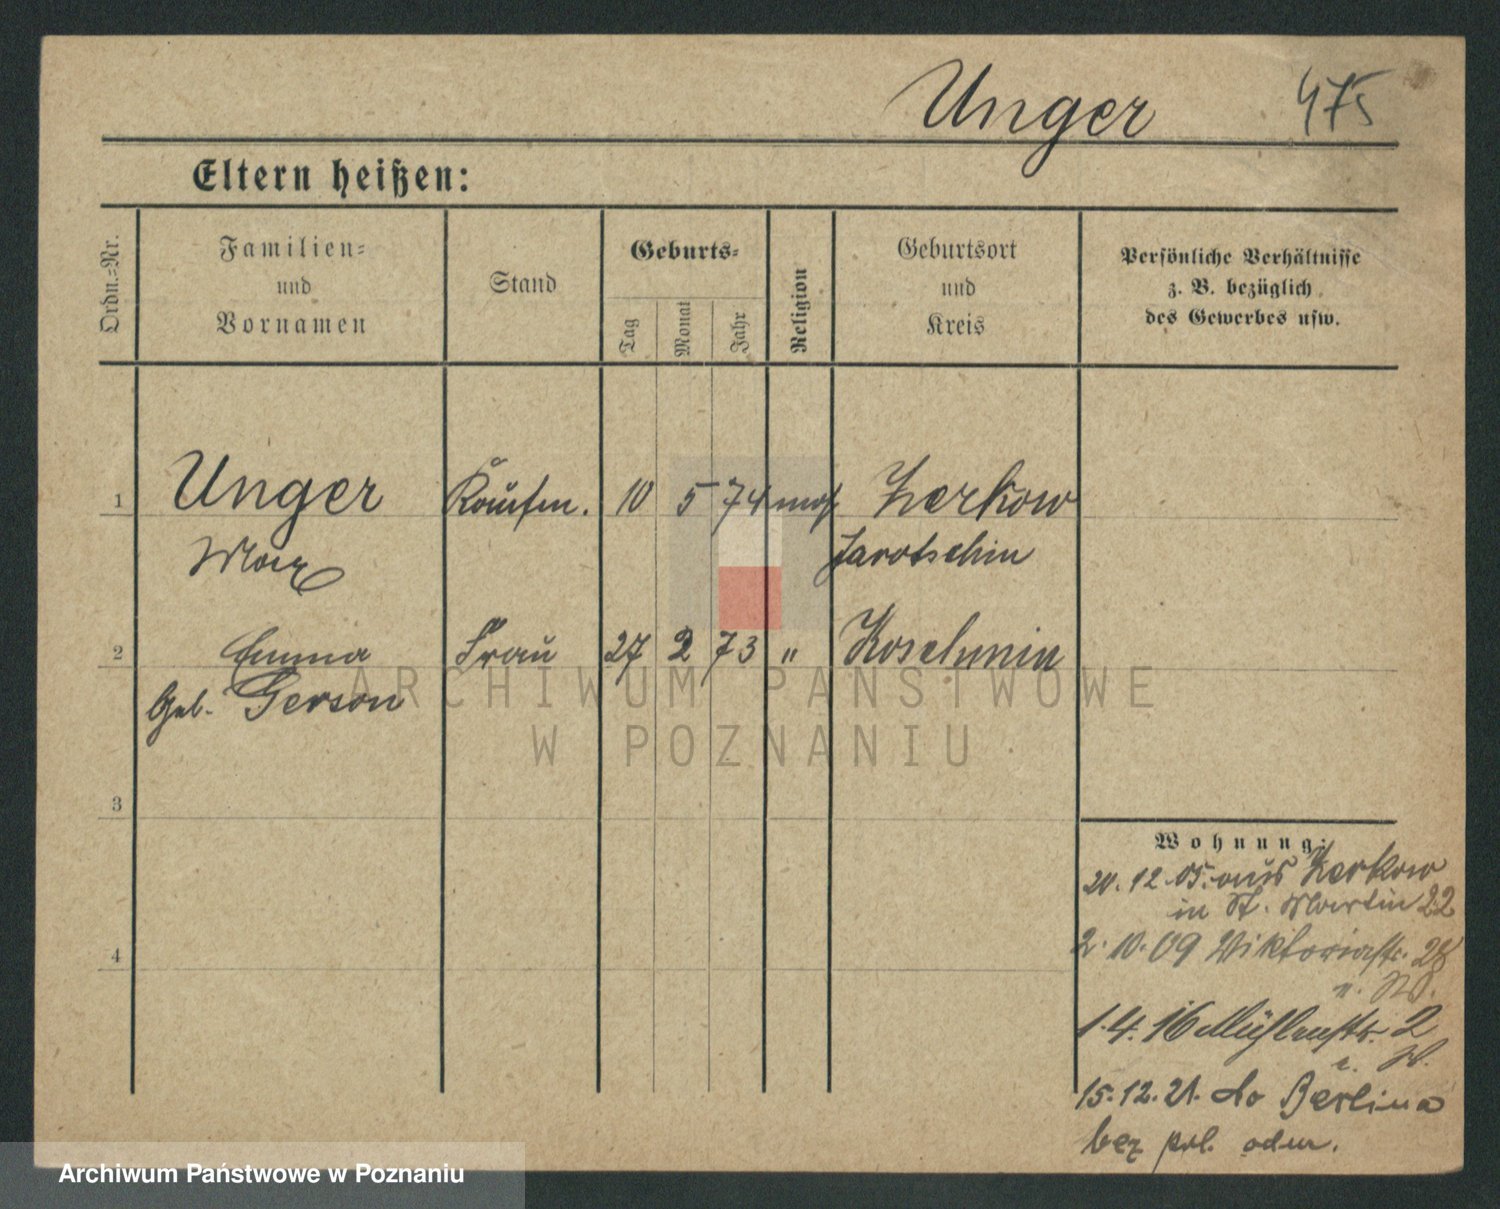 Unger 475
Eltern heißen:
Ordn.=Nr.
Familien=
und
Vornamen
Stand
Geburts=
Tag
Monat
Jahr
Religion
Geburtsort
und
Kreis
Persönliche Verhältnisse
z. B. bezüglich
des Gewerbes usw.
1 Unger Kaufm. 10 5 74 mos Zerkow
Max Jarotschin
2 Emma Frau 27 2 73 " Koschmin
Geb. Gerson
3
4
Wohnung:
20.12.05. aus Zerkow
in St. Martin 22
2.10.09 Viktoriastr. 28
1.4.16 Mühlenstr. 2
15.12.21. do Berlina
bez
ARCHIWUM PAŃSTWOWE
W POZNANIU
Archiwum Państwowe w Poznaniu